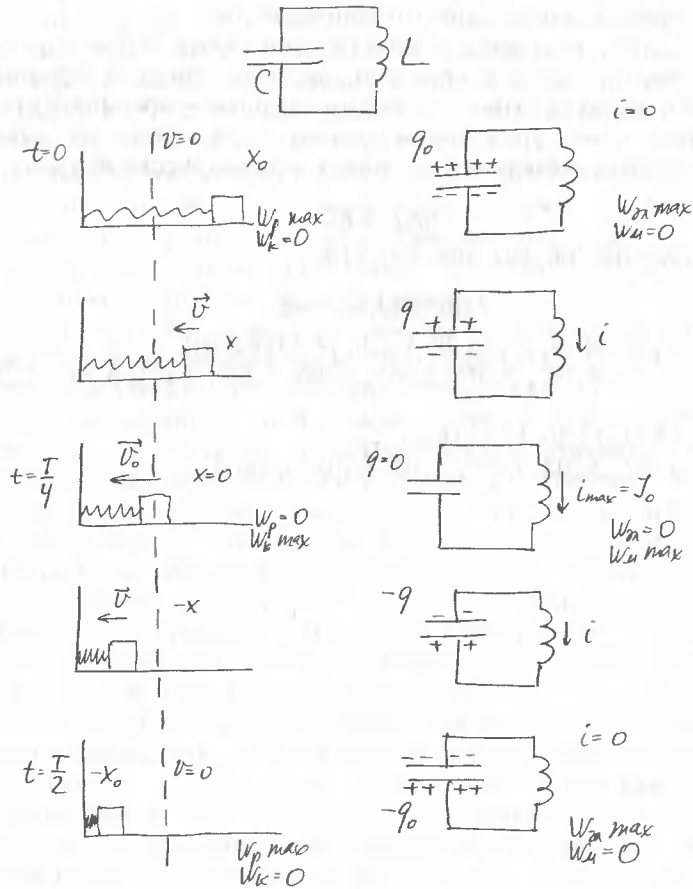 C L
t=0 v=0 x₀
W_p max
W_k=0
q₀ i=0
++ ++
– – –
W_эл max
W_м=0
v⃗ x
q + + i
– –
t=T/4 v⃗₀ x=0
W_p=0
W_k max
q=0 i_max = J₀
W_эл=0
W_м max
v⃗ -x
-q – – i
+ +
t=T/2 -x₀ v=0
W_p max
W_k=0
i=0
– – – –
++ ++
-q₀
W_эл max
W_м=0